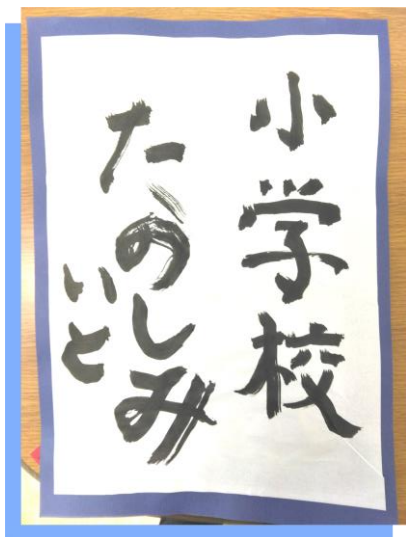 小学校
たのしみ
いと